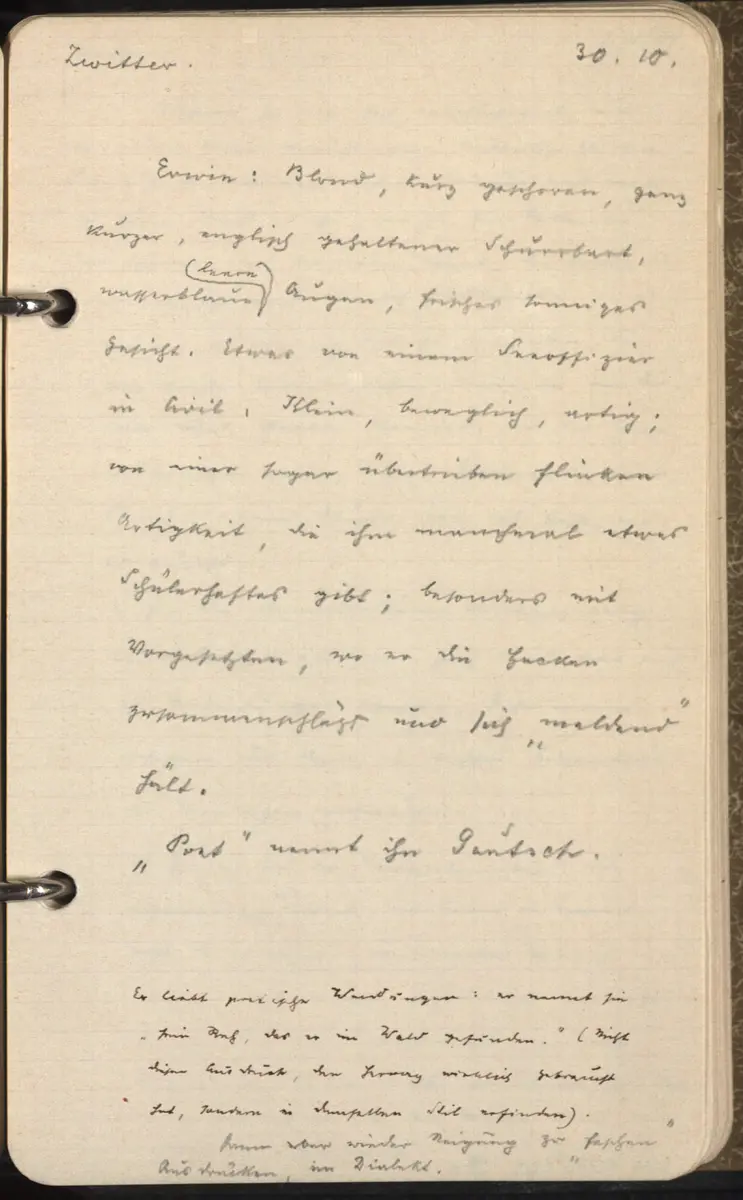 Zwitter. 30. 10.
Erwin: Blond, kurz geschoren, ganz
kurzer, englisch gehaltener Schnurrbart,
(leere)
wasserblaue Augen, frisches sonniges
Gesicht. Etwas von einem Seeoffizier
in Civil. Klein, beweglich, artig;
von einer sogar übertrieben flinken
Artigkeit, die ihm manchmal etwas
Schülerhaftes gibt; besonders mit
Vorgesetzten, wo er die Hacken
zusammenschlägt und sich „meldend“
hält.
„Poet“ nennt ihn Gautsch.
Er liebt poetische Wendungen: er nennt sie
„sein Reh, das er im Wald gefunden.“ (Nicht
diesen Ausdruck, den wirklich gebraucht
hat, sondern in demselben Stil erfinden).
Dann aber wieder Neigung zu „feschen“
Ausdrücken, im Dialekt.